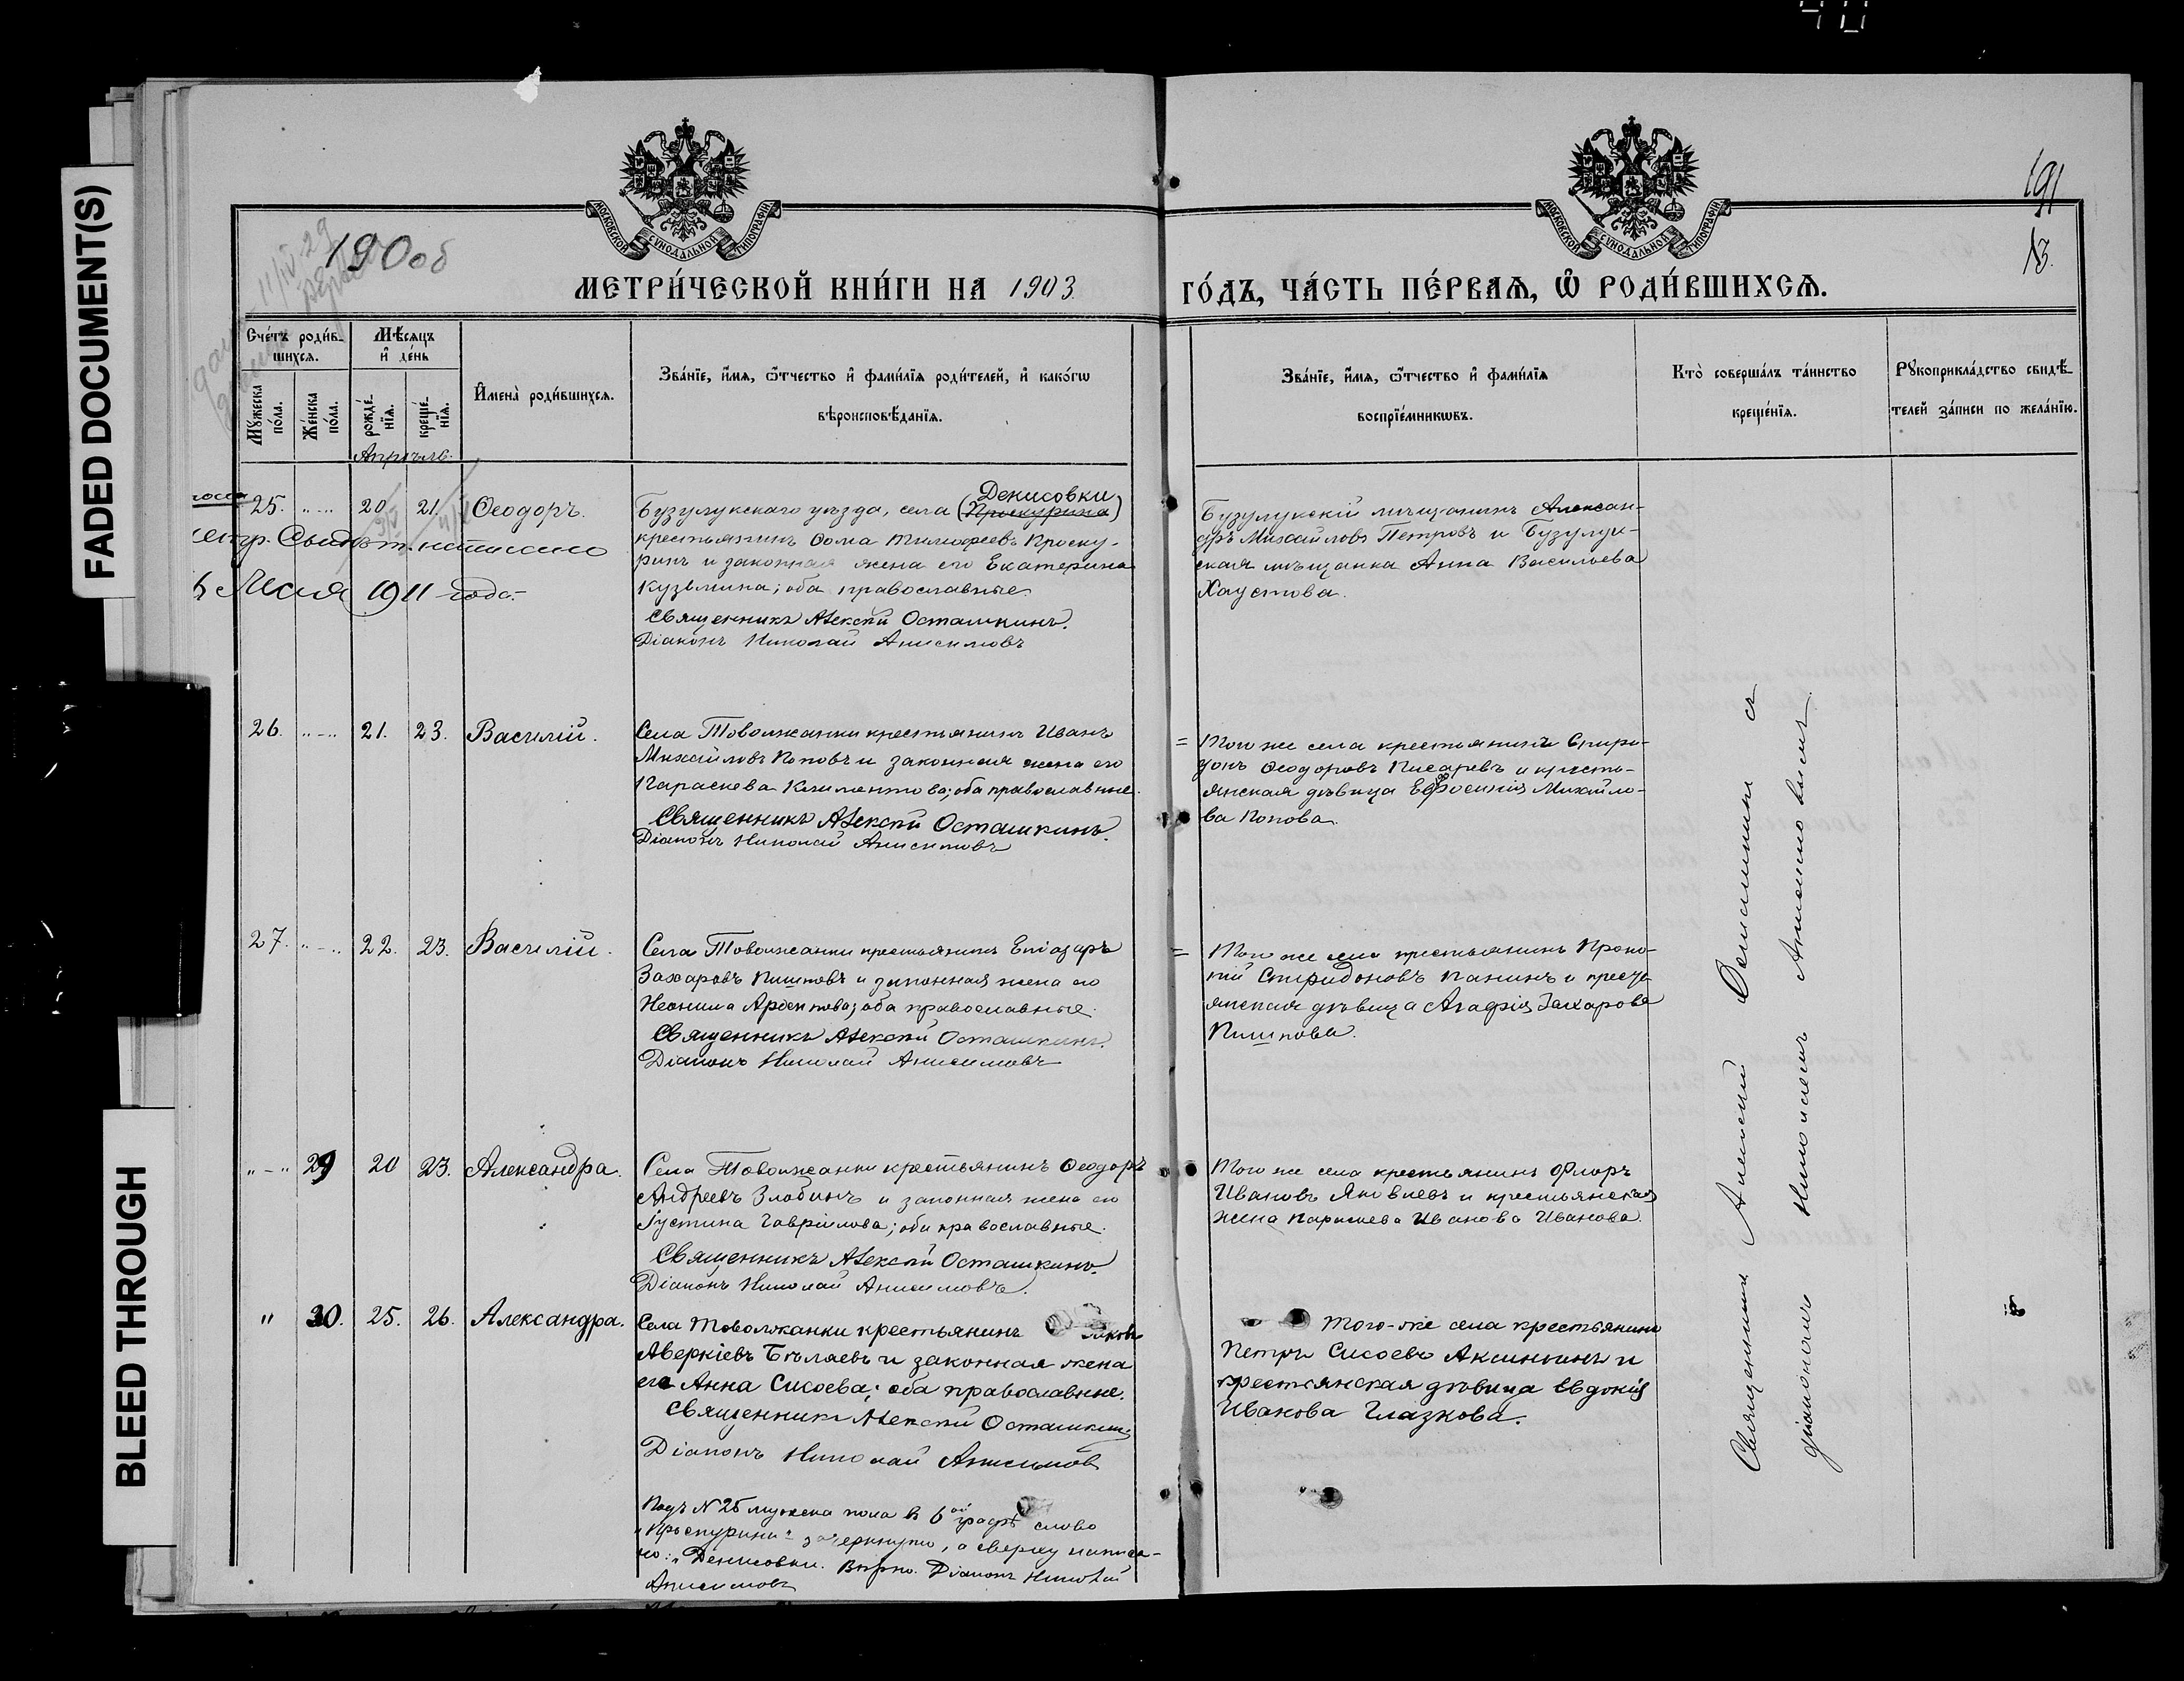 40
FADED DOCUMENT(S)
BLEED THROUGH
МОСКОВСКОЙ СѴНОДАЛЬНОЙ ТИПОГРАФІИ
МОСКОВСКОЙ СѴНОДАЛЬНОЙ ТИПОГРАФІИ
190 об
191
13.
11/IV-29
МЕТРИ́ЧЕСКОЙ КНИ́ГИ НА 1903
ГО́ДЪ, ЧА́СТЬ ПЕ́РВАѦ, Ѡ҆ РОДИ́ВШИХСѦ.
Сче́тъ роди́в-
шихсѧ.
Мꙋ́жеска по́ла.
Же́нска по́ла.
Мѣ́сѧцъ и҆ де́нь
рожде́-нїѧ.
креще́-нїѧ.
И҆мена̀ роди́вшихсѧ.
Зва́нїе, и҆́мѧ, ѻ҆́тчество и҆ фами́лїѧ роди́телей, и҆ како́гѡ
вѣроисповѣ́данїѧ.
Зва́нїе, и҆́мѧ, ѻ҆́тчество и҆ фами́лїѧ
воспрїе́мникѡвъ.
Кто̀ соверша́лъ та́инство
креще́нїѧ.
Рꙋкоприкла́дство свидѣ́-
телей за́писи по жела́нїю.
Апрѣль.
25. "-" 20 21. Ѳеодоръ.
Свидѣт.
Мая 1911 года.
Денисовки
Бузулукскаго уѣзда, села (Проскурина)
крестьянинъ Ѳома Тимоѳеевъ Проску-
ринъ и законная жена его Екатерина
Кузьмина; оба православные.
Священникъ Алексѣй Осташкинъ.
Діаконъ Николай Анисимовъ
Бузулукскій мѣщанинъ Алексан-
дръ Михайловъ Петровъ и Бузулук-
ская мѣщанка Анна Васильева
Хаустова.
26. "-" 21. 23. Василій.
Села Товолжанки крестьянинъ Иванъ
Михайловъ Поповъ и законная жена его
Параскева Климентова; оба православные.
Священникъ Алексѣй Осташкинъ.
Діаконъ Николай Анисимовъ
= Того же села крестьянинъ Спири-
донъ Ѳеодоровъ Писаревъ и кресть-
янская дѣвица Евфросинія Михайло-
ва Попова.
27. "-" 22. 23. Василій.
Села Товолжанки крестьянинъ Еліазаръ
Захаровъ Пишковъ и законная жена его
Неонила; оба православные.
Священникъ Алексѣй Осташкинъ.
Діаконъ Николай Анисимовъ
= Того же села крестьянинъ Проко-
пій Спиридоновъ Панинъ и кресть-
янская дѣвица Агафія Захарова
Пишкова.
"-" 29 20 23. Александра.
Села Товолжанки крестьянинъ Ѳеодоръ
Андреевъ Злобинъ и законная жена его
Іустина Гавріилова; оба православные.
Священникъ Алексѣй Осташкинъ.
Діаконъ Николай Анисимовъ.
Того же села крестьянинъ Флоръ
Ивановъ Яковлевъ и крестьянская
жена Параскева Иванова Иванова.
" 30. 25. 26. Александра.
Села Товолжанки крестьянинъ Іаковъ
Аверкіевъ Бѣляевъ и законная жена
его Анна Сисоева; оба православные.
Священникъ Алексѣй Осташкинъ
Діаконъ Николай Анисимовъ
Того-же села крестьянинъ
Петръ Сисоевъ Аксининъ и
крестьянская дѣвица Евдокія
Иванова Глазкова.
Подъ № 25 мужска пола в 6ой графѣ слово
"Проскурина" зачеркнуто, а сверху написа-
но: "Денисовки. Вѣрно. Діаконъ Николай
Анисимовъ
Священникъ Алексѣй Осташкинъ съ
діакономъ Николаемъ Анисимовымъ.